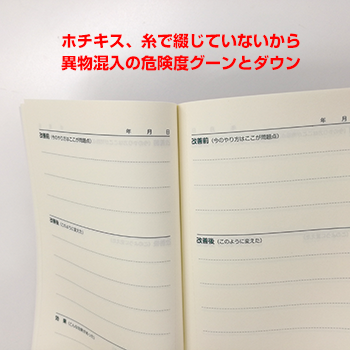 ホチキス、糸で綴じていないから
異物混入の危険度グーンとダウン
年 月 日
改善前(今のやり方はここが問題点)
改善後(このように変えた)
年 月 日
改善前(今のやり方はここが問題点)
改善後(このように変えた)